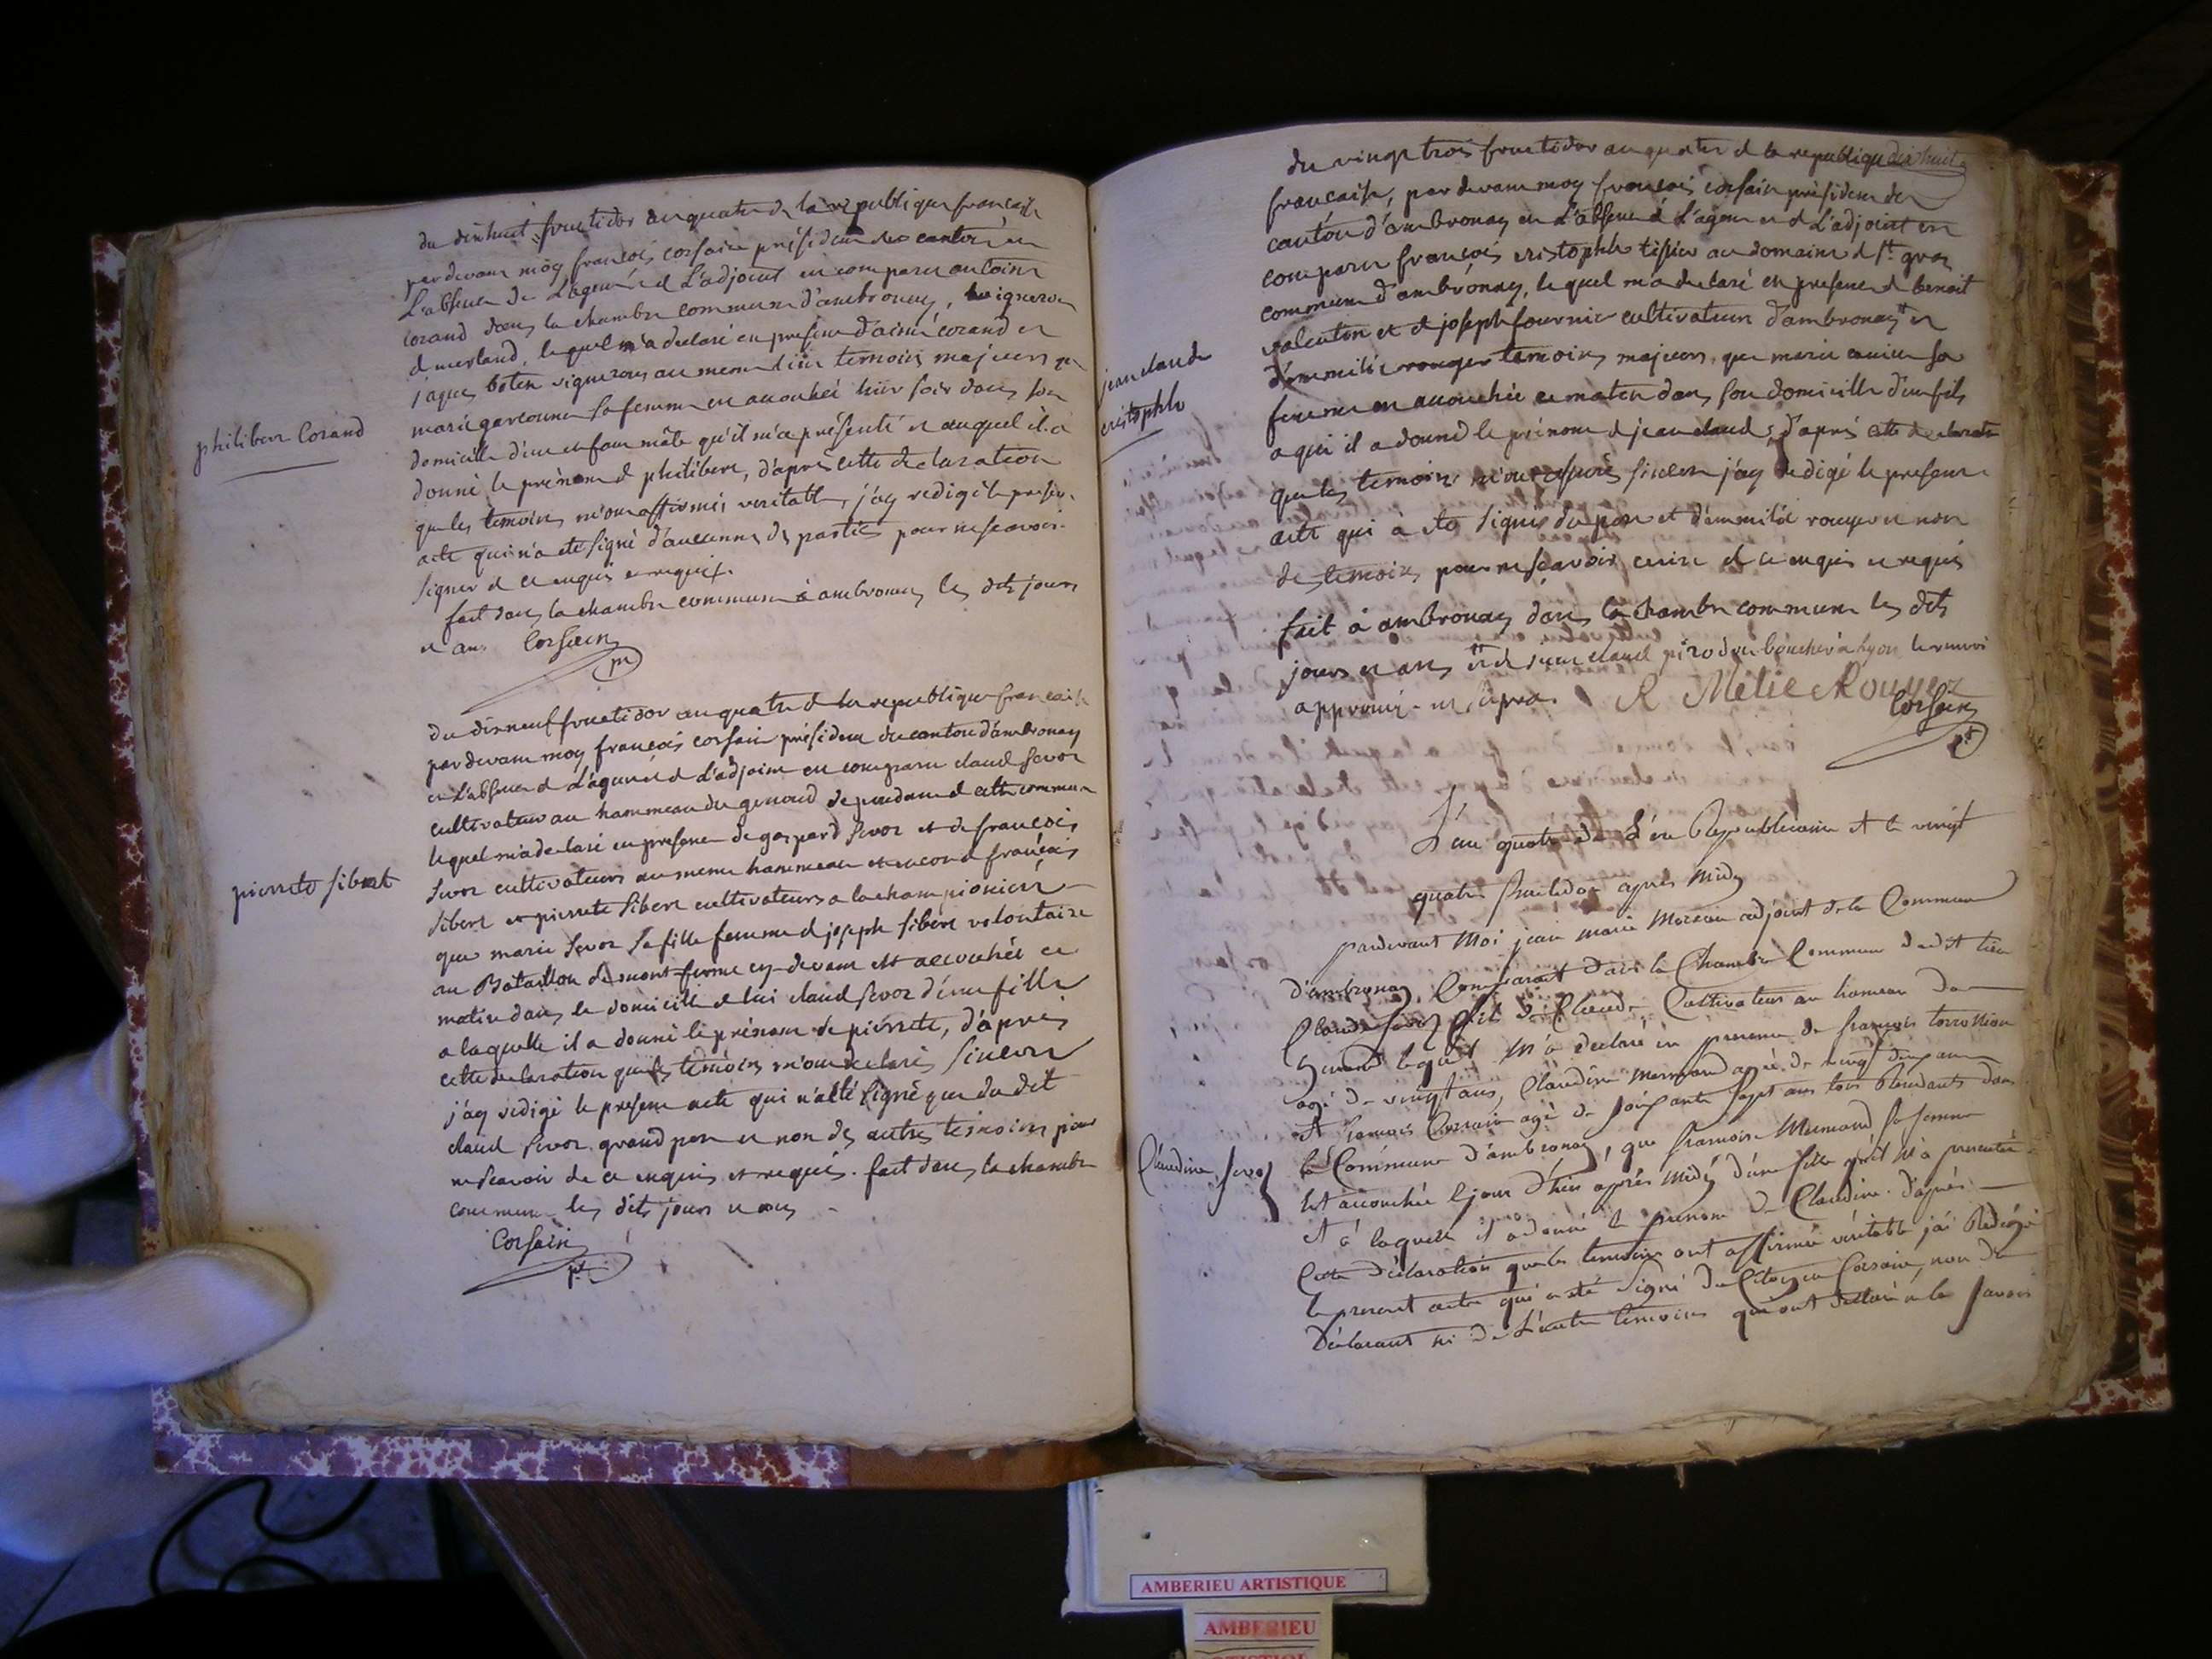 du dixhuit fructidor an quatre de la republique francaise
pardevant moy francois corsain président du canton en
L'absence de L'agent et L'adjoint est comparu antoine
corand dans la chambre commune d'ambronay, vigneron
lequel m'a declaré en presence d'aimé corand et
jaque vignerons au meme lieu temoins majeurs que
marie sa femme est accouchée hier soir dans son
domicille d'un enfant mâle qu'il m'a présenté et auquel il a
donné le prénom de philibert, d'après cette declaration
que les temoins m'ont affirmés veritable, j'ay redigé le present
acte qui n'a eté signé d'aucunne des parties pour ne scavoir
signer de ce enquis et requis.
fait dans la chambre commune à ambronay les dits jours
et ans Corsain
pt
philibert Corand
du dixneuf fructidor an quatre de la republique francaise
pardevant moy francois corsain président du canton d'ambronay
en L'absence de L'agent et de L'adjoint est comparu claude sevoz
cultivateur au hammeau du genoud dependant de cette commune
lequel m'a declaré en presence de gaspard sevoz et de francois
sevoz cultivateurs au meme hammeau et encore de francois
sibert et pierrete sibert cultivateurs a la championiere
que marie sevoz sa fille femme de joseph sibert volontaire
au Bataillon de mont-ferme cy-devant est accouchée ce
matin dans le domicille de lui claud sevoz d'une fille
a laquelle il a donné le prénom de pierrete, d'après
cette declaration que les temoins m'ont declaré sincere
j'ay redigé le present acte qui n'a été signé que du dit
claud sevoz grand pere et non des autres temoins pour
ne scavoir de ce enquis et requis. fait dans la chambre
commune les dits jours et ans
Corsain
pt
pierrete sibert
du vingt trois fructidor an quatre de la republique
francaise, par devant moy francois corsain président du
canton d'ambronay en L'absence de L'agent et de L'adjoint est
comparu francois cristophle tissier au domaine de st
commune d'ambronay, lequel m'a declaré en presence de benoit
valenton et de joseph fournier cultivateurs d'ambronay et
d'emmilie rouger temoins majeurs, que marie sa
femme est accouchée ce matin dans son domicille d'un fils
a qui il a donné le prénom de jean claude, d'après cette declaration
que les temoins m'ont assurés sincere j'ay redigé le present
acte qui à eté signé du pere et d'emmilie rouyer et non
des temoins pour ne scavoir ecrire de ce enquis et requis
fait à ambronay dans la chambre commune les dits
jours et ans et de jean claude boucher à lyon le renvoi
approuvé R Melie Rouyer
Corsain
pt
jean claude
cristophle
L'an quatre de L'ere Republicaine et le vingt
quatre fructidor après midy
pardevant Moi jean marie Moreau adjoint de la Commune
d'ambronay, Comparait dans la Chambre Commune dudit lieu
Claude Sevoz fils de Claude, Cultivateur au hameau du
Genoud lequel M'a declaré en presence de francois
agé de vingt ans, Claudine Mermand agée de vingt deux ans
et francois Corsain agé de soixante sept ans tous Residants dans
la Commune d'ambronay, que francoise Mermand sa femme
Est accouchée le jour d'hier après Midy d'une fille qu'il M'a presentée
et à laquelle il a donné le prenom de Claudine. d'après
Cette Déclaration que les temoins ont affirmée véritable j'ai Redigé
le present acte qui a eté signé du Citoyen Corsain, non du
Déclarant ni de L'autre temoins qui ont declaré ne le savoir
Claudine Sevoz
AMBERIEU ARTISTIQUE
AMBERIEU
ARTISTIQUE